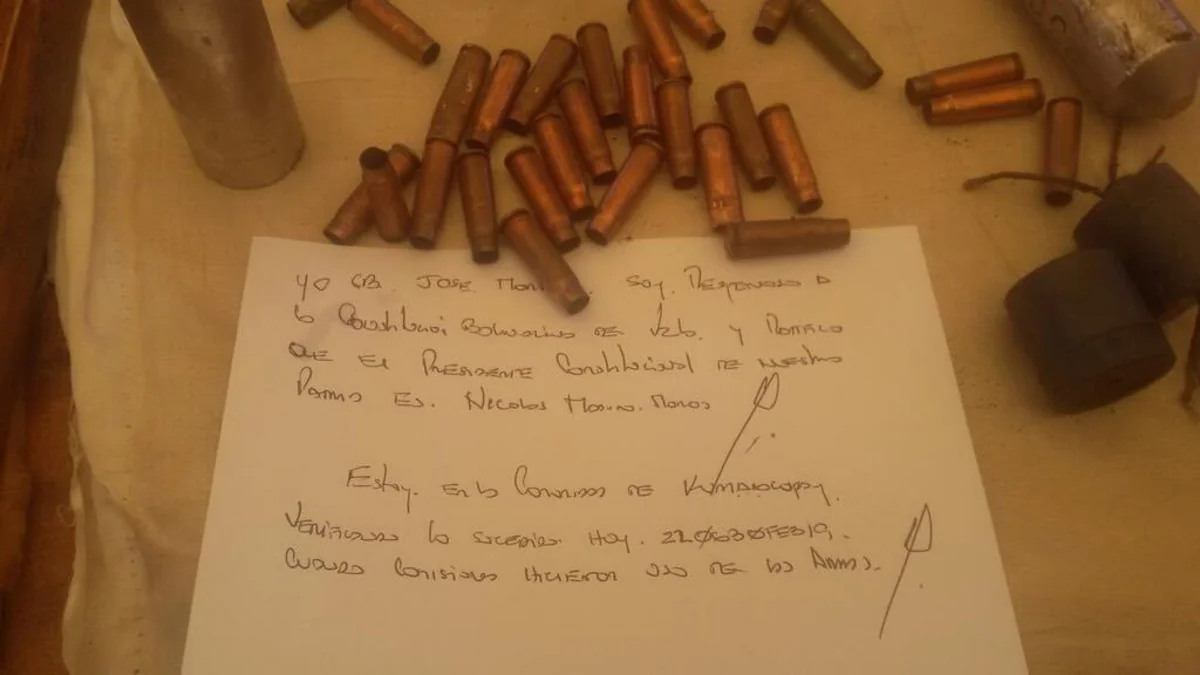 YO GB. JOSE Mon Soy. Respetuoso a
la Constitución Bolivariana DE Vzla. y Ratifico
QUE EL PRESIDENTE Constitucional DE NUESTRO
PAIS ES. NICOLAS MADURO. MOROS
Estoy. EN la Comunidad DE KUMARACAPAY.
VERIFICANDO lo sucedido Hoy. 220630FEB19.
CUANDO COMISIONES HICIERON USO DE LAS ARMAS.